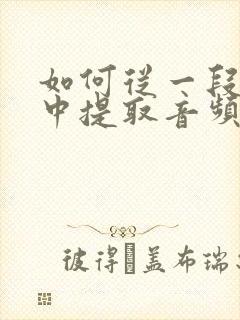 如何從一段
中提取音頻
彼得 盖布瑞